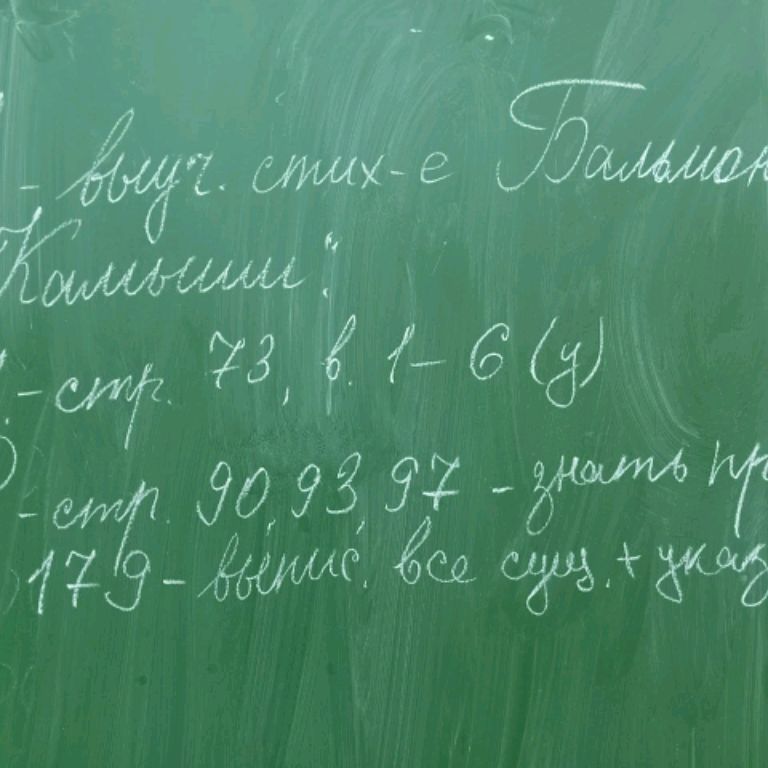 - выуч. стих-е Бальмон
"Камыши"
- стр. 73, в. 1-6 (у)
- стр. 90, 93, 97 - знать пр
179 - выпис. все сущ. + указ